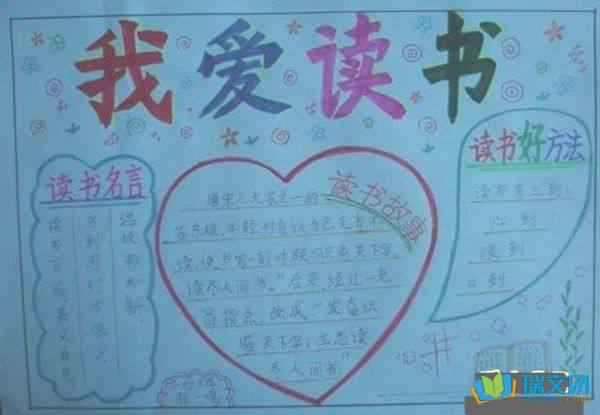 我爱读书
读书名言
温故而知新
书到用时方恨少
读书百遍,其义自见。
读书故事
唐宋八大家之一的
苏东坡,年轻时自认为已无书不
读,便书写一副对联:"识遍天下字,
读尽人间书。"后来,经过一老
翁指点,改成:"发奋识
遍天下字,立志读
尽人间书。"
读书好方法
读书有三到:
心到
眼到
口到
瑞文网